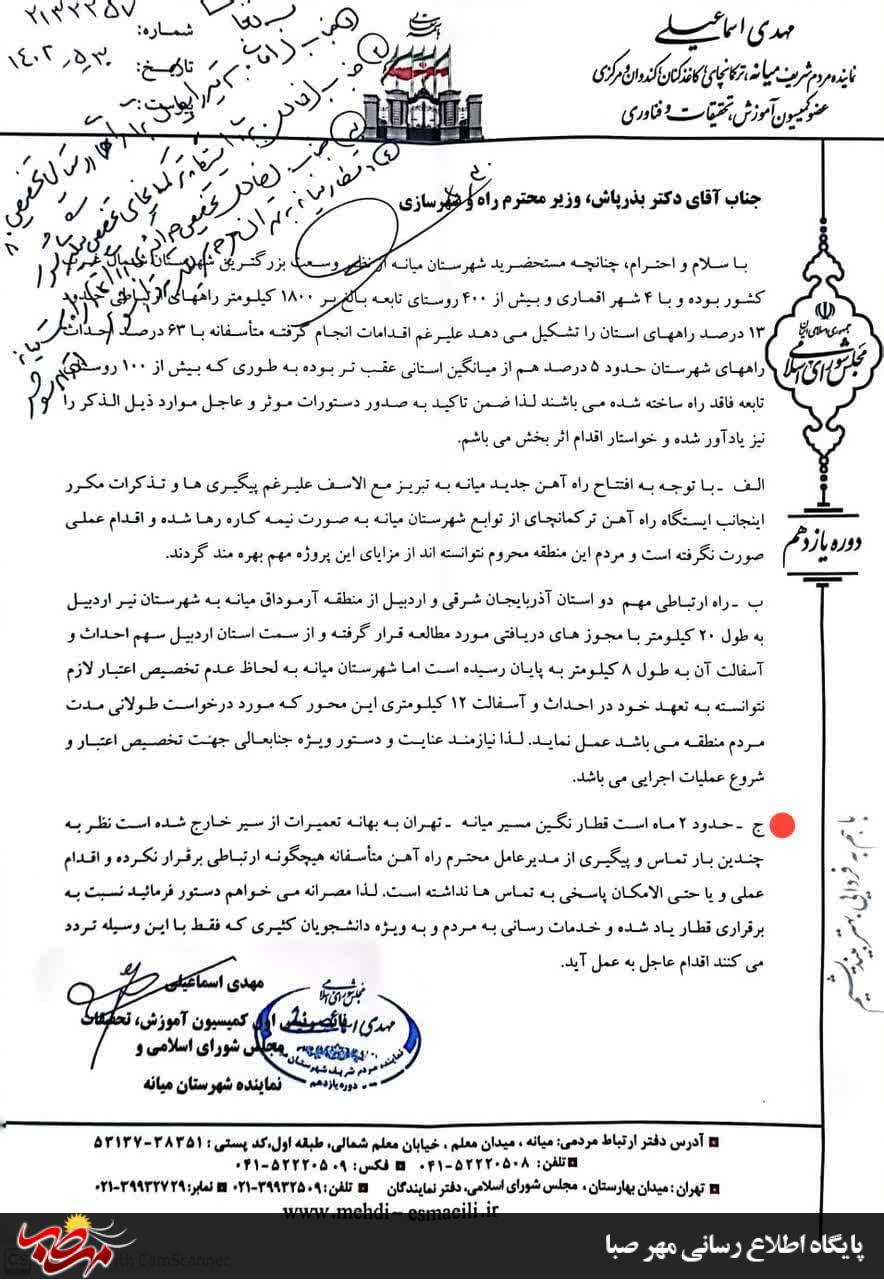 مهدی اسماعیلی
نماینده مردم شریف میانه، ترکمانچای، کاغذکنان، کندوان مرکزی
عضو کمیسیون آموزش، تحقیقات و فناوری
شماره:
تاریخ:
پیوست:
جناب آقای دکتر بذرپاش، وزیر محترم راه و شهرسازی
با سلام و احترام، چنانچه مستحضرید شهرستان میانه از نظر وسعت بزرگترین شهرستان شمال غرب
کشور بوده و با ۴ شهر اقماری و بیش از ۴۰۰ روستای تابعه بالغ بر ۱۸۰۰ کیلومتر راههای ارتباطی حدود
۱۳ درصد راههای استان را تشکیل می دهد علیرغم اقدامات انجام گرفته متأسفانه با ۶۳ درصد احداث
راههای شهرستان حدود ۵ درصد هم از میانگین استانی عقب تر بوده به طوری که بیش از ۱۰۰ روستای
تابعه فاقد راه ساخته شده می باشند لذا ضمن تاکید به صدور دستورات موثر و عاجل موارد ذیل الذکر را
نیز یادآور شده و خواستار اقدام اثر بخش می باشم.
الف ـ با توجه به افتتاح راه آهن جدید میانه به تبریز مع الاسف علیرغم پیگیری ها و تذکرات مکرر
اینجانب ایستگاه راه آهن ترکمانچای از توابع شهرستان میانه به صورت نیمه کاره رها شده و اقدام عملی
صورت نگرفته است و مردم این منطقه محروم نتوانسته اند از مزایای این پروژه مهم بهره مند گردند.
ب ـ راه ارتباطی مهم دو استان آذربایجان شرقی و اردبیل از منطقه آرموداق میانه به شهرستان نیر اردبیل
به طول ۲۰ کیلومتر با مجوز های دریافتی مورد مطالعه قرار گرفته و از سمت استان اردبیل سهم احداث و
آسفالت آن به طول ۸ کیلومتر به پایان رسیده است اما شهرستان میانه به لحاظ عدم تخصیص اعتبار لازم
نتوانسته به تعهد خود در احداث و آسفالت ۱۲ کیلومتری این محور که مورد درخواست طولانی مدت
مردم منطقه می باشد عمل نماید. لذا نیازمند عنایت و دستور ویژه جنابعالی جهت تخصیص اعتبار و
شروع عملیات اجرایی می باشد.
ج ـ حدود ۲ ماه است قطار نگین مسیر میانه ـ تهران به بهانه تعمیرات از سیر خارج شده است نظر به
چندین بار تماس و پیگیری از مدیرعامل محترم راه آهن متأسفانه هیچگونه ارتباطی برقرار نکرده و اقدام
عملی و یا حتی الامکان پاسخی به تماس ها نداشته است. لذا مصرانه می خواهم دستور فرمائید نسبت به
برقراری قطار یاد شده و خدمات رسانی به مردم و به ویژه دانشجویان کثیری که فقط با این وسیله تردد
می کنند اقدام عاجل به عمل آید.
مهدی اسماعیلی
نایب رئیس اول کمیسیون آموزش، تحقیقات
مجلس شورای اسلامی و
نماینده شهرستان میانه
مجلس شورای اسلامی
مهدی اسماعیلی
نماینده مردم شریف شهرستان
دوره یازدهم
جمهوری اسلامی ایران
مجلس شورای اسلامی
دوره یازدهم
با هم به فردایی بهتر بیندیشیم
آدرس دفتر ارتباط مردمی: میانه ، میدان معلم ، خیابان معلم شمالی، طبقه اول، کد پستی : ۳۸۳۵۱-۵۳۱۳۷
تلفن: ۵۲۲۲۰۵۰۸-۰۴۱ فکس: ۵۲۲۲۰۵۰۹-۰۴۱
تهران : میدان بهارستان ، مجلس شورای اسلامی، دفتر نمایندگان تلفن : ۳۹۹۳۲۵۰۹-۰۲۱ نمابر: ۳۹۹۳۲۷۲۹-۰۲۱
www.mehdi-esmaeili.ir
پایگاه اطلاع رسانی مهر صبا
مهر صبا
CamScanner